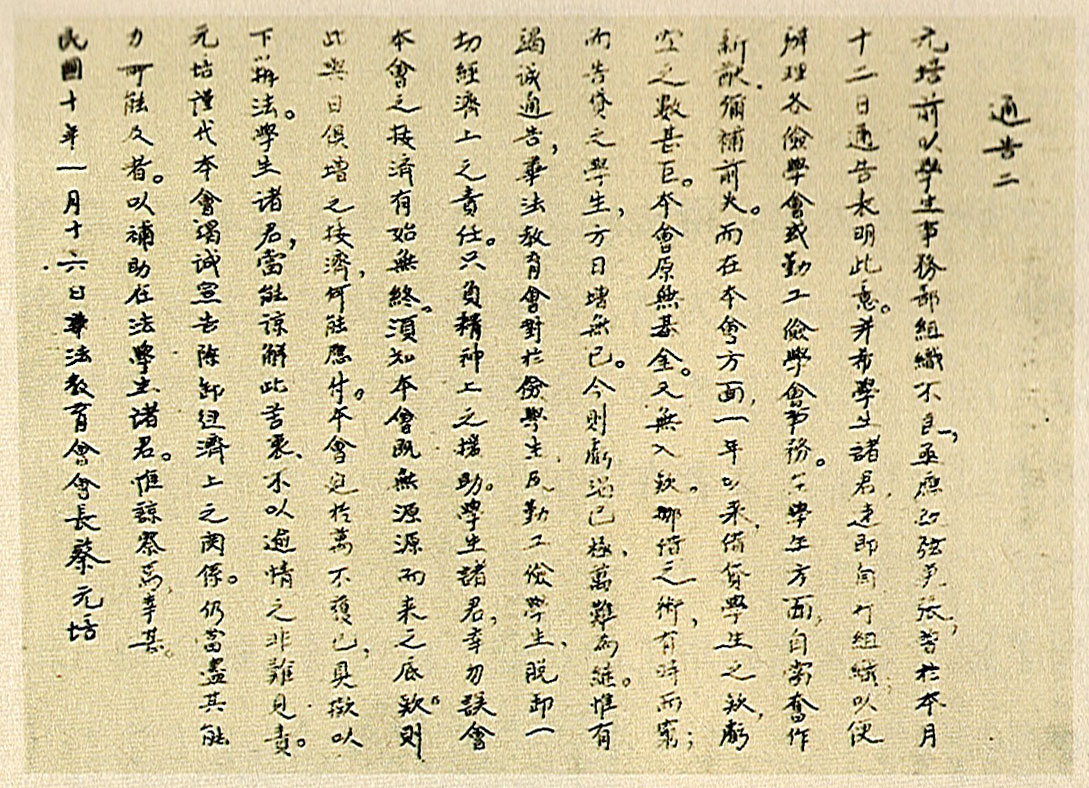 通告二
元培前以學生事務部組織不良，亟應改弦更張，曾於本月
十二日通告表明此意。并希學生諸君，速即自行組織，以便
辦理各儉學會或勤工儉學會事務。在學生方面，自當奮作
新猷，彌補前失。而在本會方面，一年以來，借貸學生之欵，虧
空之數甚巨。本會原無基金。又無入欵。挪借之術，有時而窮；
而告貸之學生，方日增無已。今則虧竭已極，萬難為繼。惟有
竭誠通告，華法教育會對於儉學生及勤工儉學生，脫卸一
切經濟上之責任。只負精神上之援助。學生諸君，幸勿誤會
本會之接濟有始無終。須知本會既無源源而來之底欵。則
此與日俱增之接濟，何能應付。本會迫於萬不獲已，具徵以
下辦法。學生諸君，當能諒解此苦衷、不以逾情之非難見責。
元培謹代本會竭誠宣告除卸經濟上之関係。仍當盡其能
力所能及者。以補助在法學生諸君。惟諒察焉，幸甚。
民國十年一月十六日華法教育會會長蔡元培